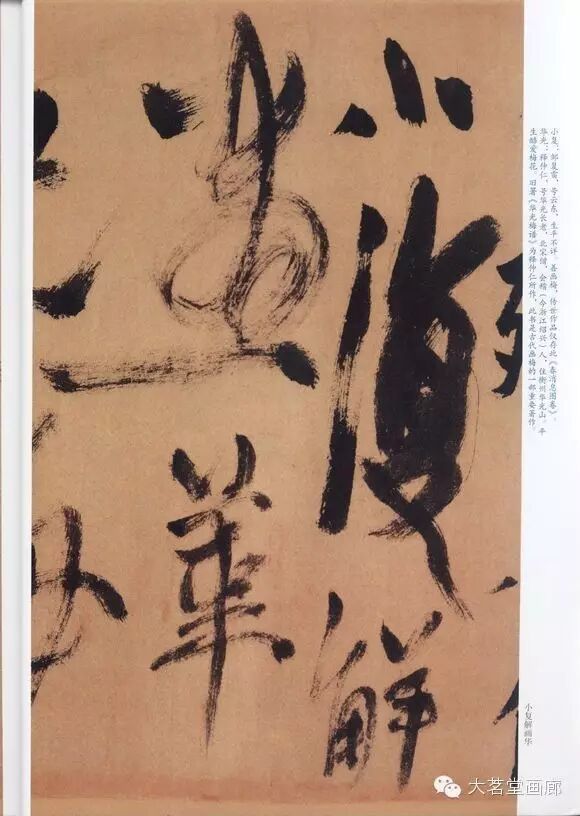 小复：邹复雷，号云东，生平不详。善画梅，传世作品仅存此《春消息图卷》。
华光：释仲仁，号华光长老，北宋僧，会稽（今浙江绍兴）人，住衡州华光山。平
生酷爱梅花。旧署《华光梅谱》为释仲仁所作，此书是古代画梅的一部重要著作。
小復解
畫華
小复解画华
大茗堂画廊